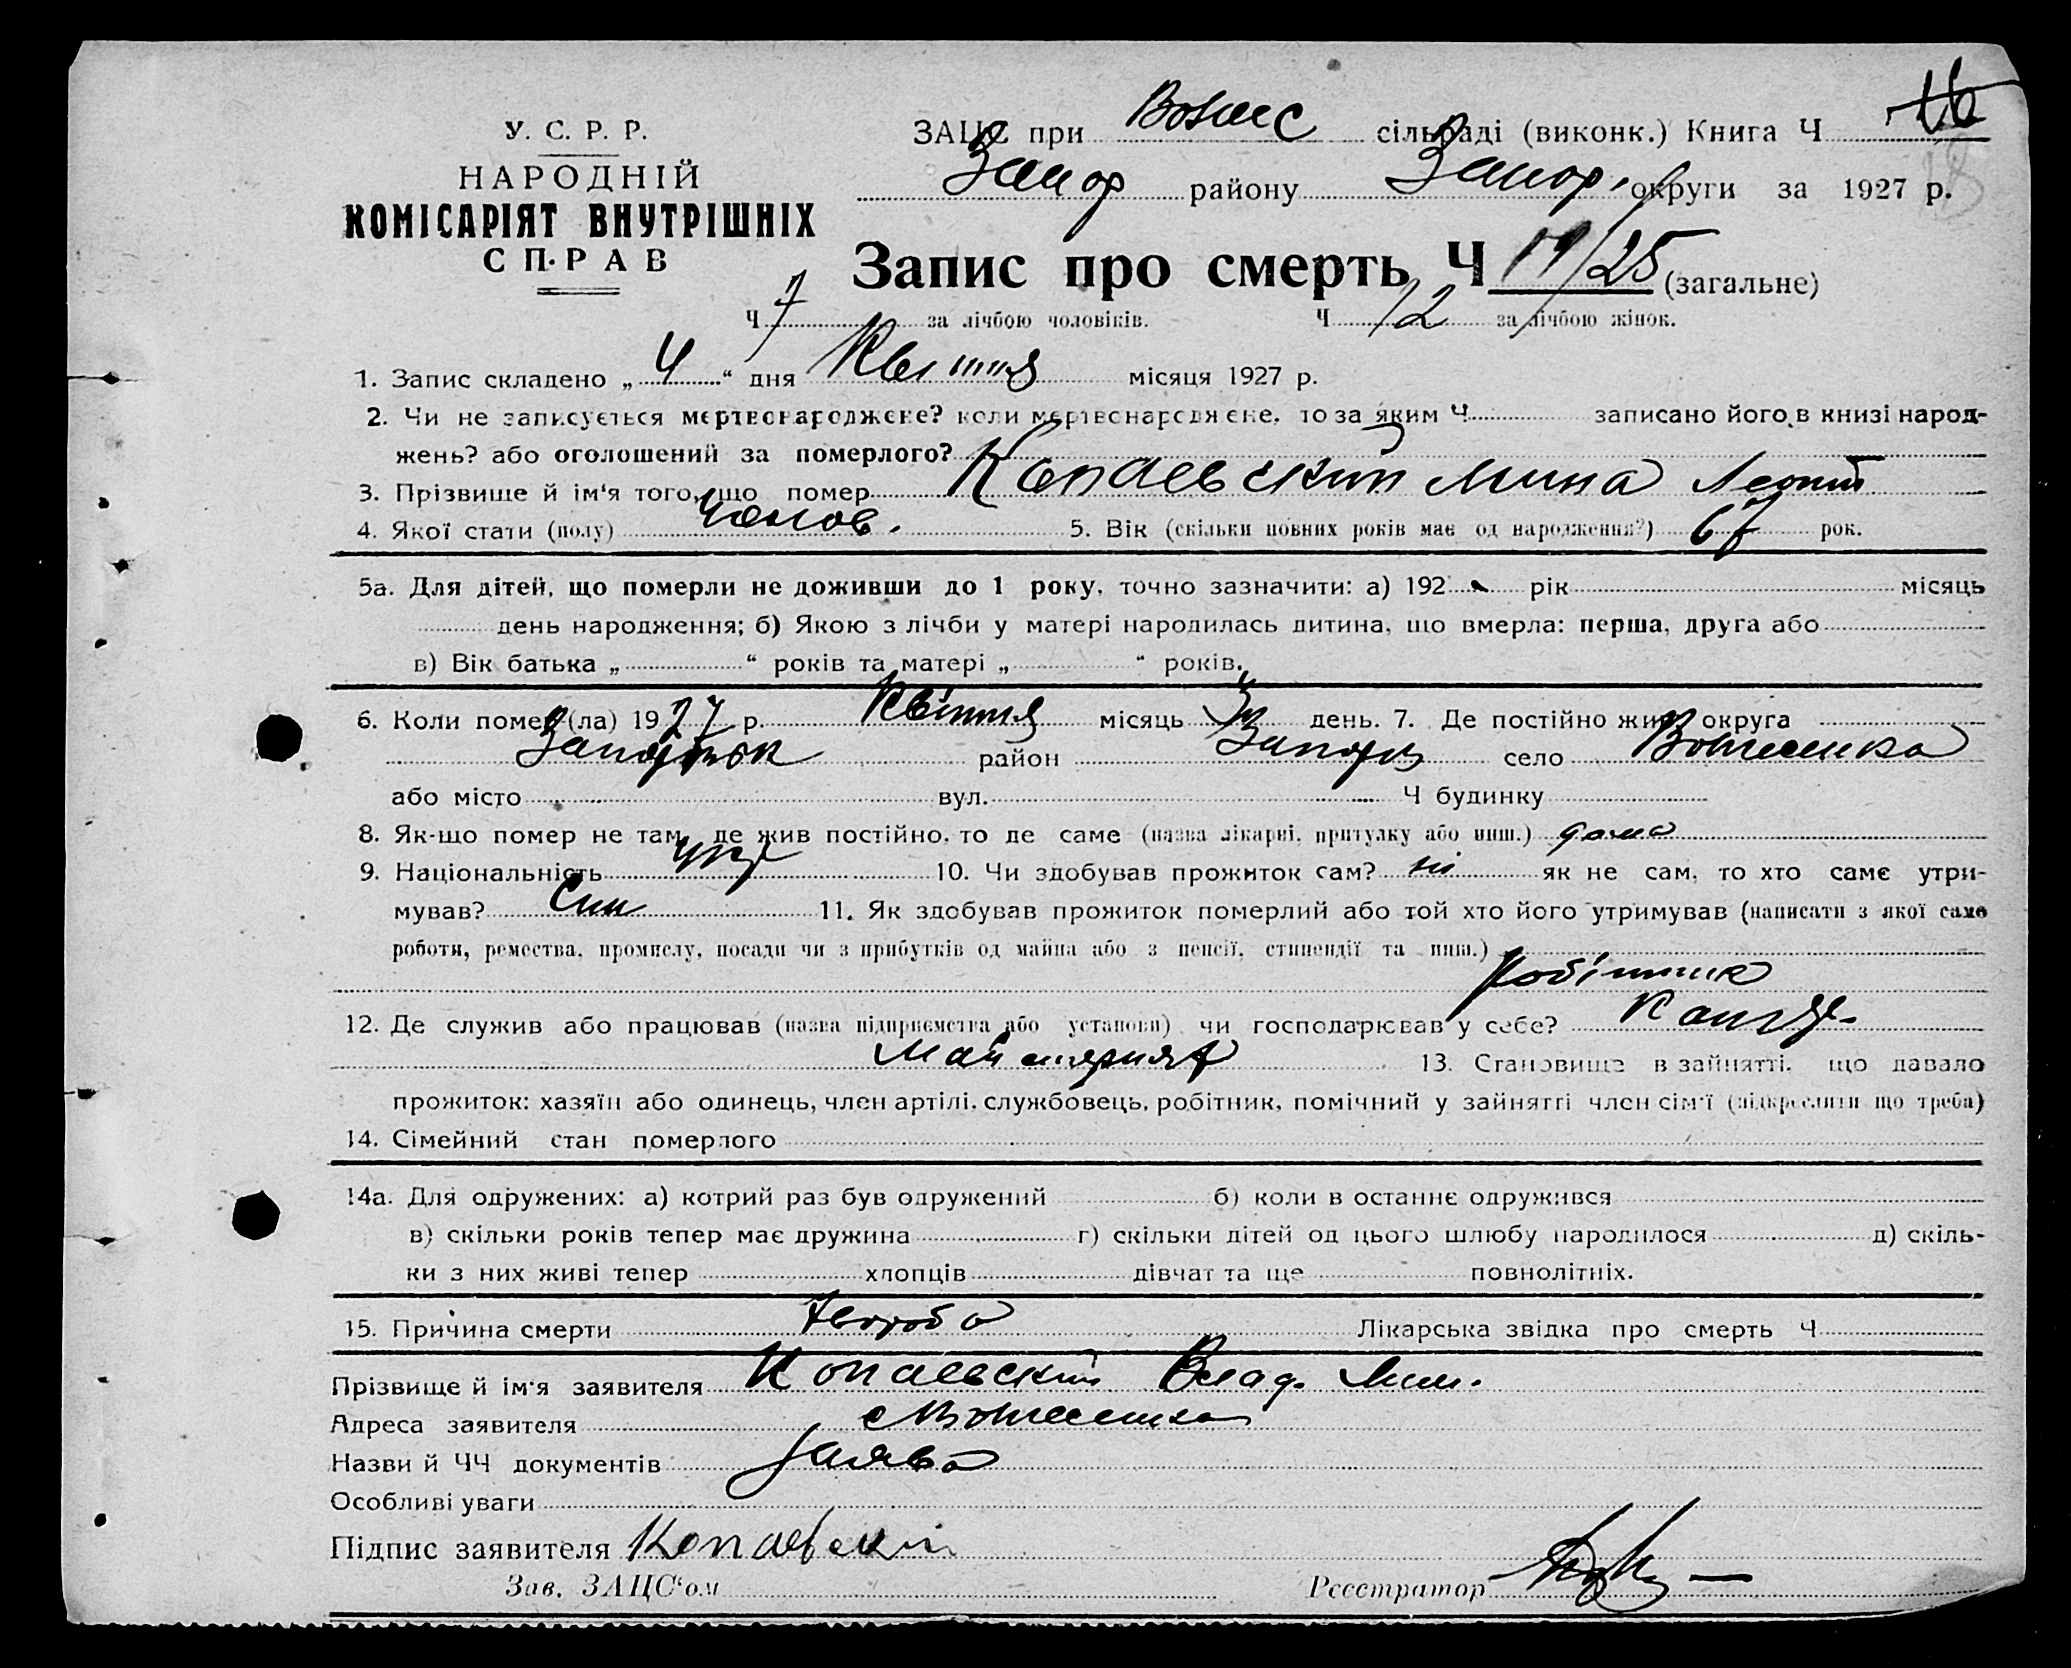 У. С. Р. Р.
НАРОДНІЙ
КОМІСАРІЯТ ВНУТРІШНІХ
СПРАВ
ЗАЦС при Вознес сільраді (виконк.) Книга Ч
Запор району Запор. округи за 1927 р.
Запис про смерть Ч 19/25 (загальне)
Ч 7 за лічбою чоловіків. Ч 12 за лічбою жінок.
1. Запис складено „ 4 “ дня Квітня місяця 1927 р.
2. Чи не записується мертвонароджене? коли мертвонароджене, то за яким Ч записано його в книзі народ-
жень? або оголошений за померлого?
3. Прізвище й ім'я того, що помер Копаевский Мина Леонт
4. Якої стати (полу) Чолов. 5. Вік (скільки повних років має од народження?) 67 рок.
5а. Для дітей, що померли не доживши до 1 року, точно зазначити: а) 192 рік місяць
день народження; б) Якою з лічби у матері народилась дитина, що вмерла: перша, друга або
в) Вік батька „ “ років та матері „ “ років.
6. Коли помер (ла) 1927 р. Квітня місяць 3 день. 7. Де постійно жив округа
район Запоріз село Вознесенка
або місто вул. Ч будинку
8. Як-що помер не там, де жив постійно, то де саме (назва лікарні, притулку або инш.) дома
9. Національність укр 10. Чи здобував прожиток сам? ні як не сам, то хто саме утри-
мував? Син 11. Як здобував прожиток померлий або той хто його утримував (написати з якої саме
роботи, ремества, промислу, посади чи з прибутків од майна або з пенсії, стипендії та инш.)
робітник
12. Де служив або працював (назва підприємства або установи) чи господарював у себе?
13. Становище в зайнятті, що давало
прожиток: хазяїн або одинець, член артілі, службовець, робітник, помічний у зайнятті член сім'ї (підкреслити що треба)
14. Сімейний стан померлого
14а. Для одружених: а) котрий раз був одружений б) коли в останнє одружився
в) скільки років тепер має дружина г) скільки дітей од цього шлюбу народилося д) скіль-
ки з них живі тепер хлопців дівчат та ще повнолітніх.
15. Причина смерти хвороба Лікарська звідка про смерть Ч
Прізвище й ім'я заявителя Копаевский Влад. Мин.
Адреса заявителя с Вознесенка
Назви й ЧЧ документів заява
Особливі уваги
Підпис заявителя Копаевский
Зав. ЗАЦС'ом Реєстратор